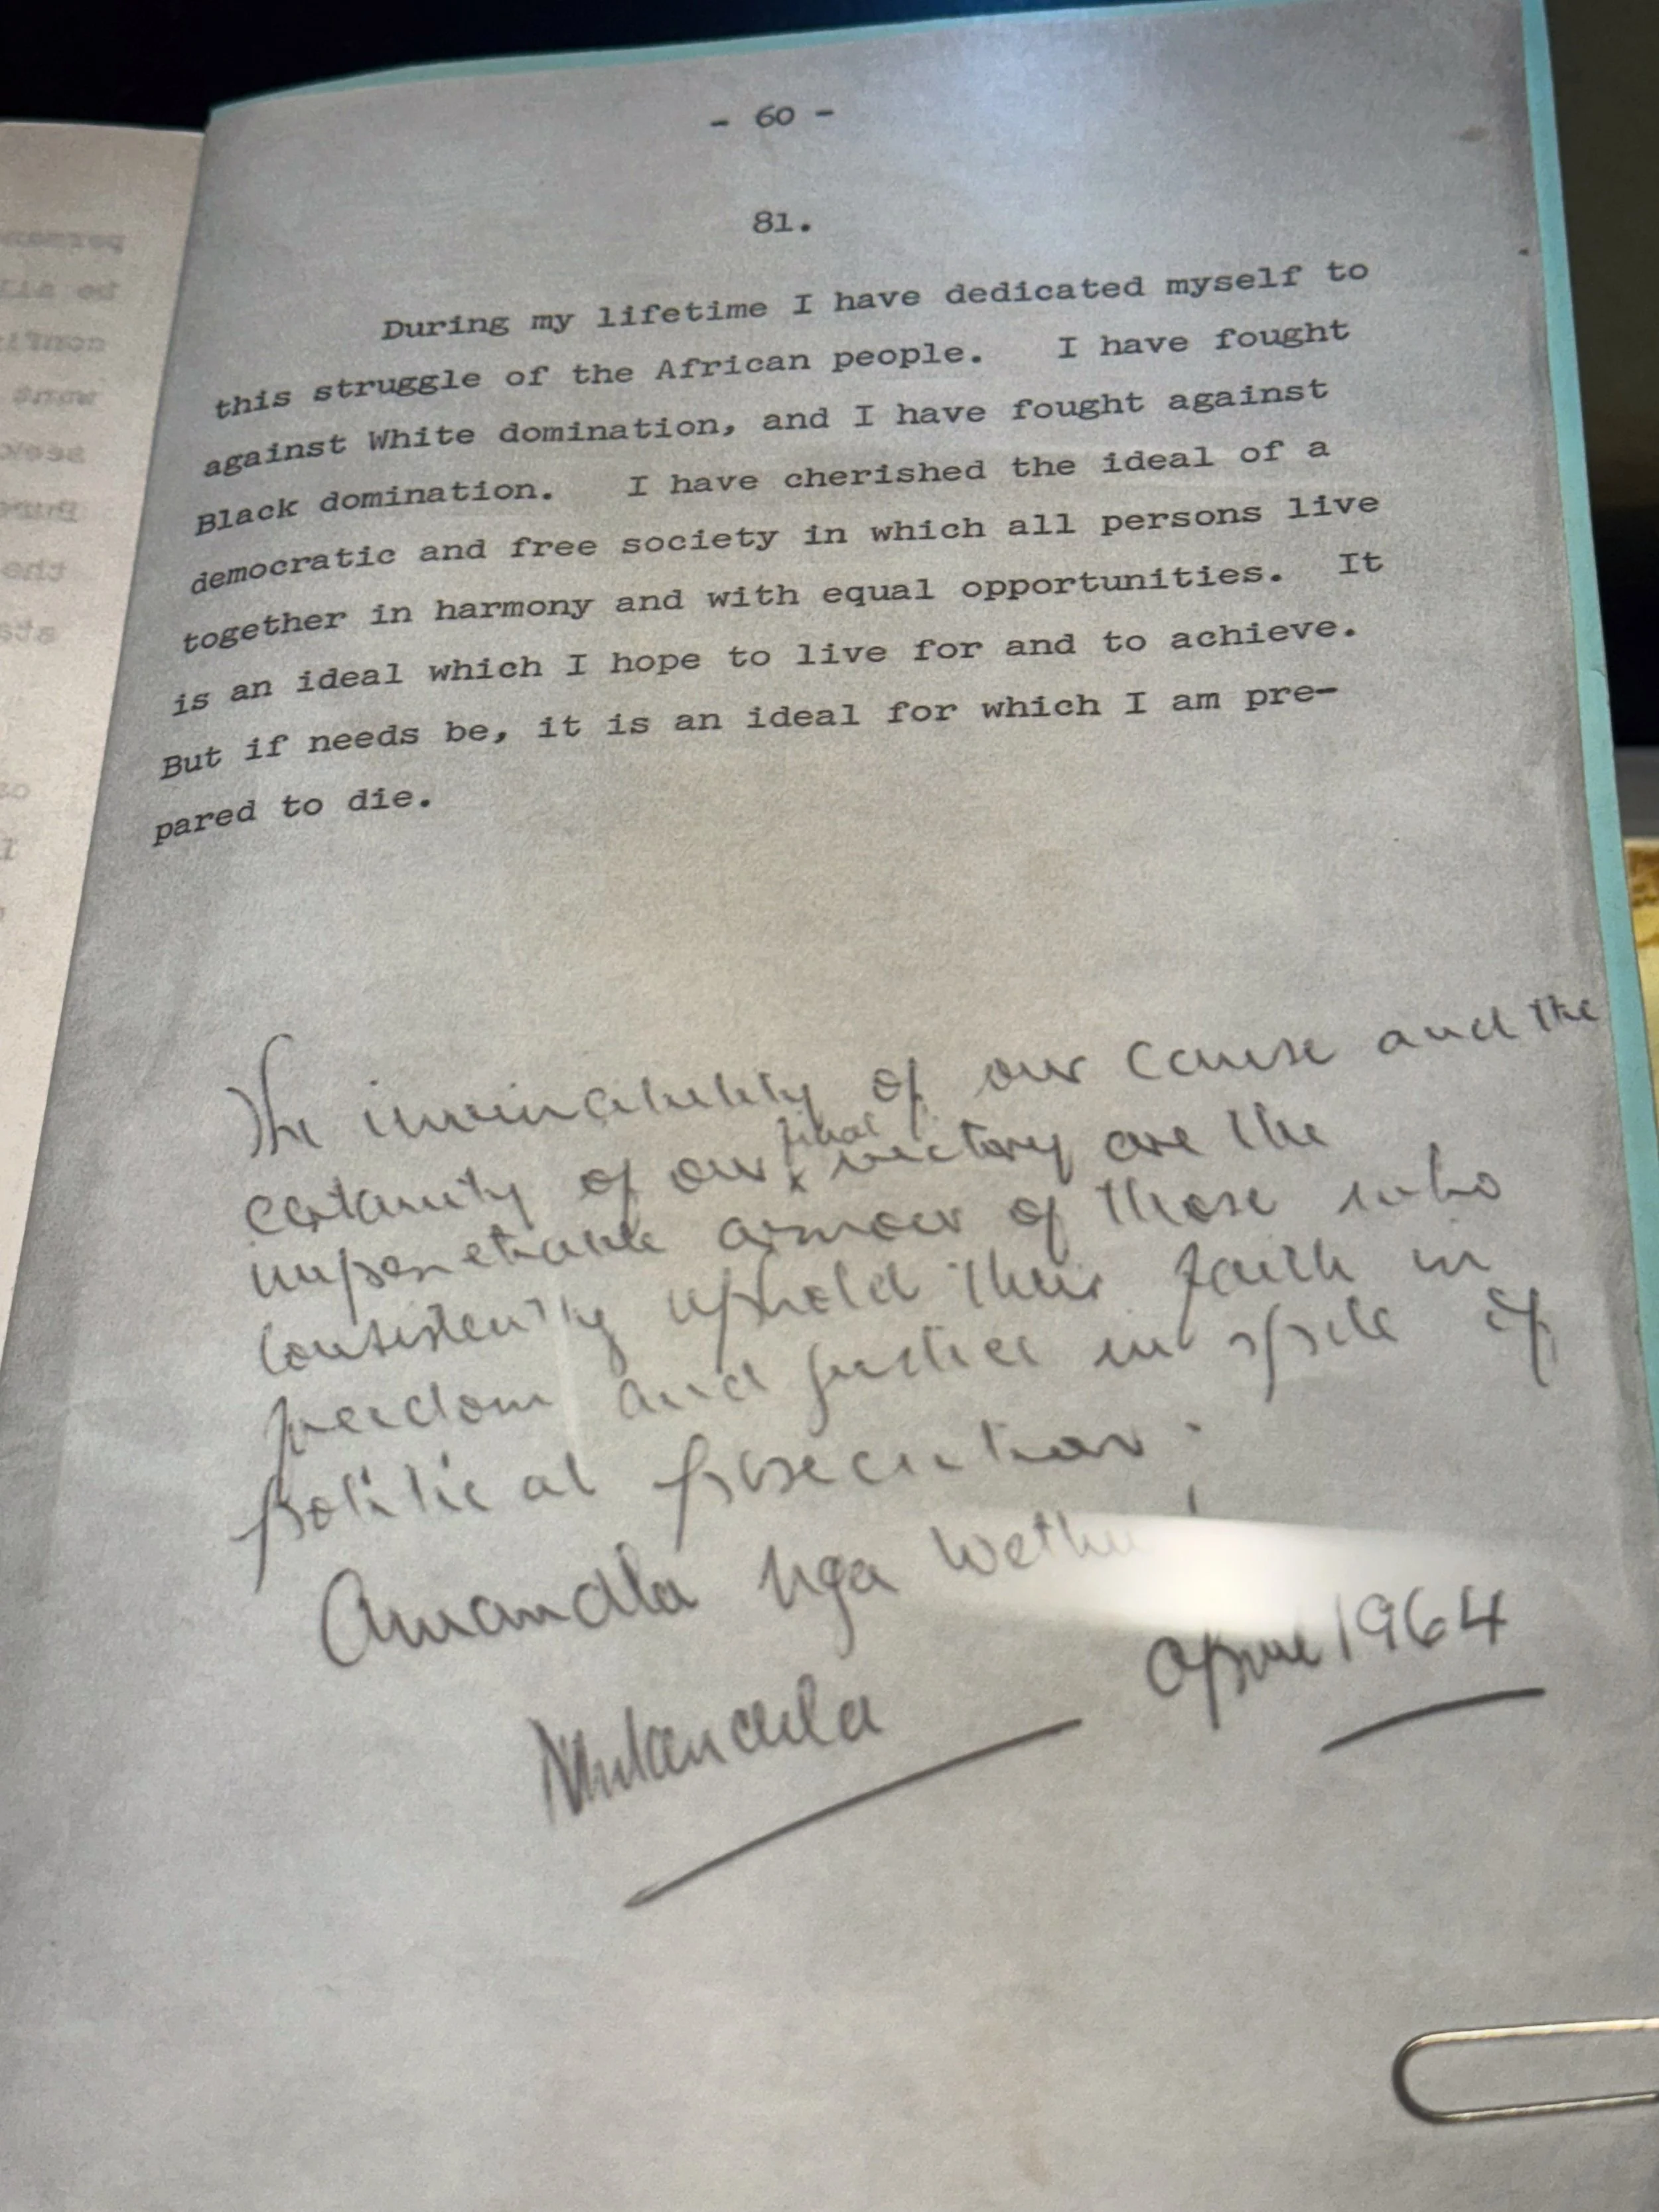 - 60 -
81.
During my lifetime I have dedicated myself to
this struggle of the African people. I have fought
against White domination, and I have fought against
Black domination. I have cherished the ideal of a
democratic and free society in which all persons live
together in harmony and with equal opportunities. It
is an ideal which I hope to live for and to achieve.
But if needs be, it is an ideal for which I am pre-
pared to die.
The invincibility of our cause and the
certainty of our final victory are the
impenetrable armour of those who
consistently uphold their faith in
freedom and justice in spite of
political persecution.
Amandla Nga
NMandela
1964